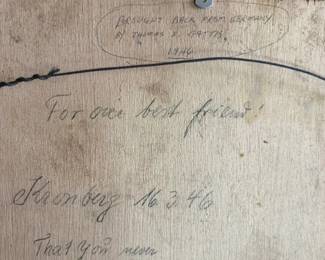 BROUGHT BACK FROM GERMANY
BY THOMAS
1946
For our best friend!
Kronberg 16 3 46
That you never